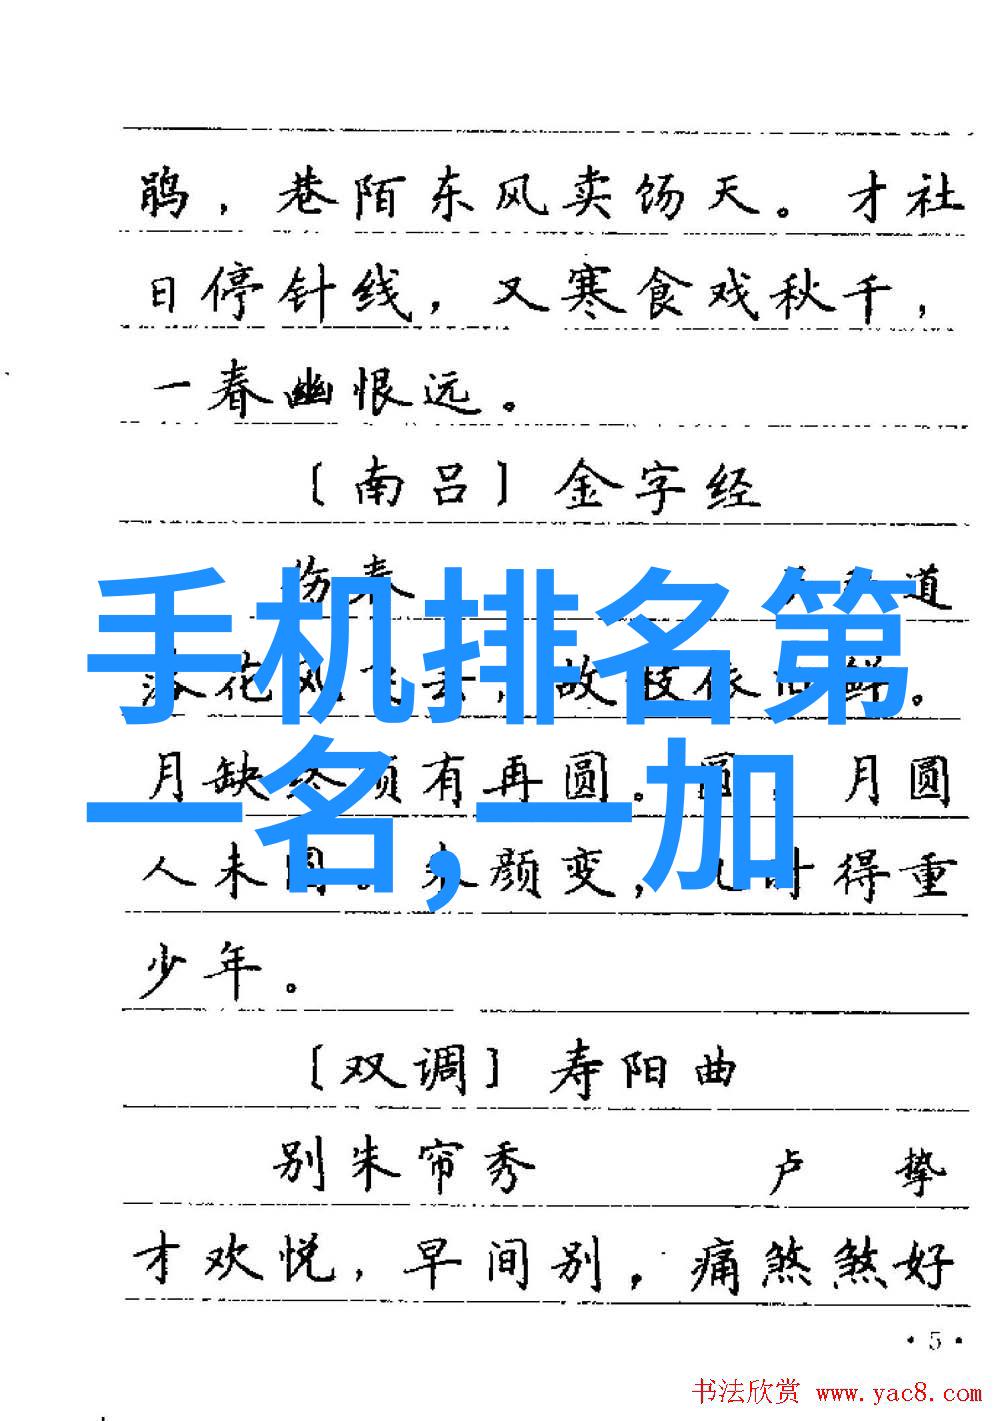 鹃，巷陌东风卖饧天。才社
日停针线，又寒食戏秋千，
一春幽恨远。
〔南吕〕金字经
伤春 道
手机排名第
落花风飞去，故枝依旧鲜。
月缺终须有再圆。圆，月圆
一名，一加
人未圆。朱颜变，几时得重
少年。
〔双调〕寿阳曲
别朱帘秀 卢挚
才欢悦，早间别，痛煞煞好
·5·
书法欣赏 www.yac8.com